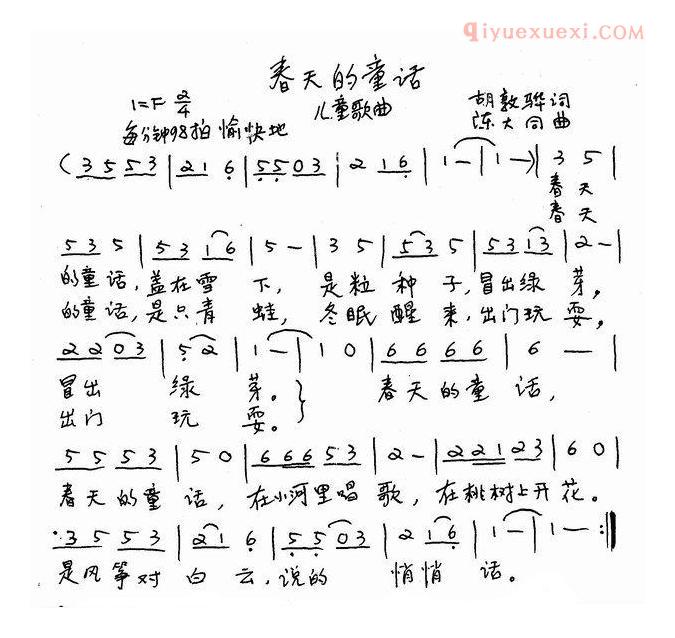 qiyuexuexi.com
春天的童话
1=F 2/4
儿童歌曲
胡敦骅词
每分钟98拍 愉快地
陈大同曲
(3 5 5 3 | 2 1 6 | 5 5 0 3 | 2 1 6 | 1 — | 1 —) | 3 5 |
春 天
春 天
5 3 5 | 5 3 1 6 | 5 — | 3 5 | 5 3 5 | 5 3 1 3 | 2 — |
的童话,盖在雪 下, 是粒 种 子,冒出绿 芽。
的童话,是只青 蛙, 冬眠 醒 来,出门玩 耍。
2 2 0 3 | 5 2 | 1 — | 1 0 | 6 6 6 6 | 6 — |
冒出 绿 芽。} 春天的童 话,
出门 玩 耍。
5 5 5 3 | 5 0 | 6 6 6 5 3 | 2 — | 2 2 1 2 3 | 6 0 |
春天的童 话, 在小河里唱 歌, 在桃树上开 花。
3 5 5 3 | 2 1 6 | 5 5 0 3 | 2 1 6 | 1 — | 1 — :||
是风筝对 白 云,说的 悄悄 话。